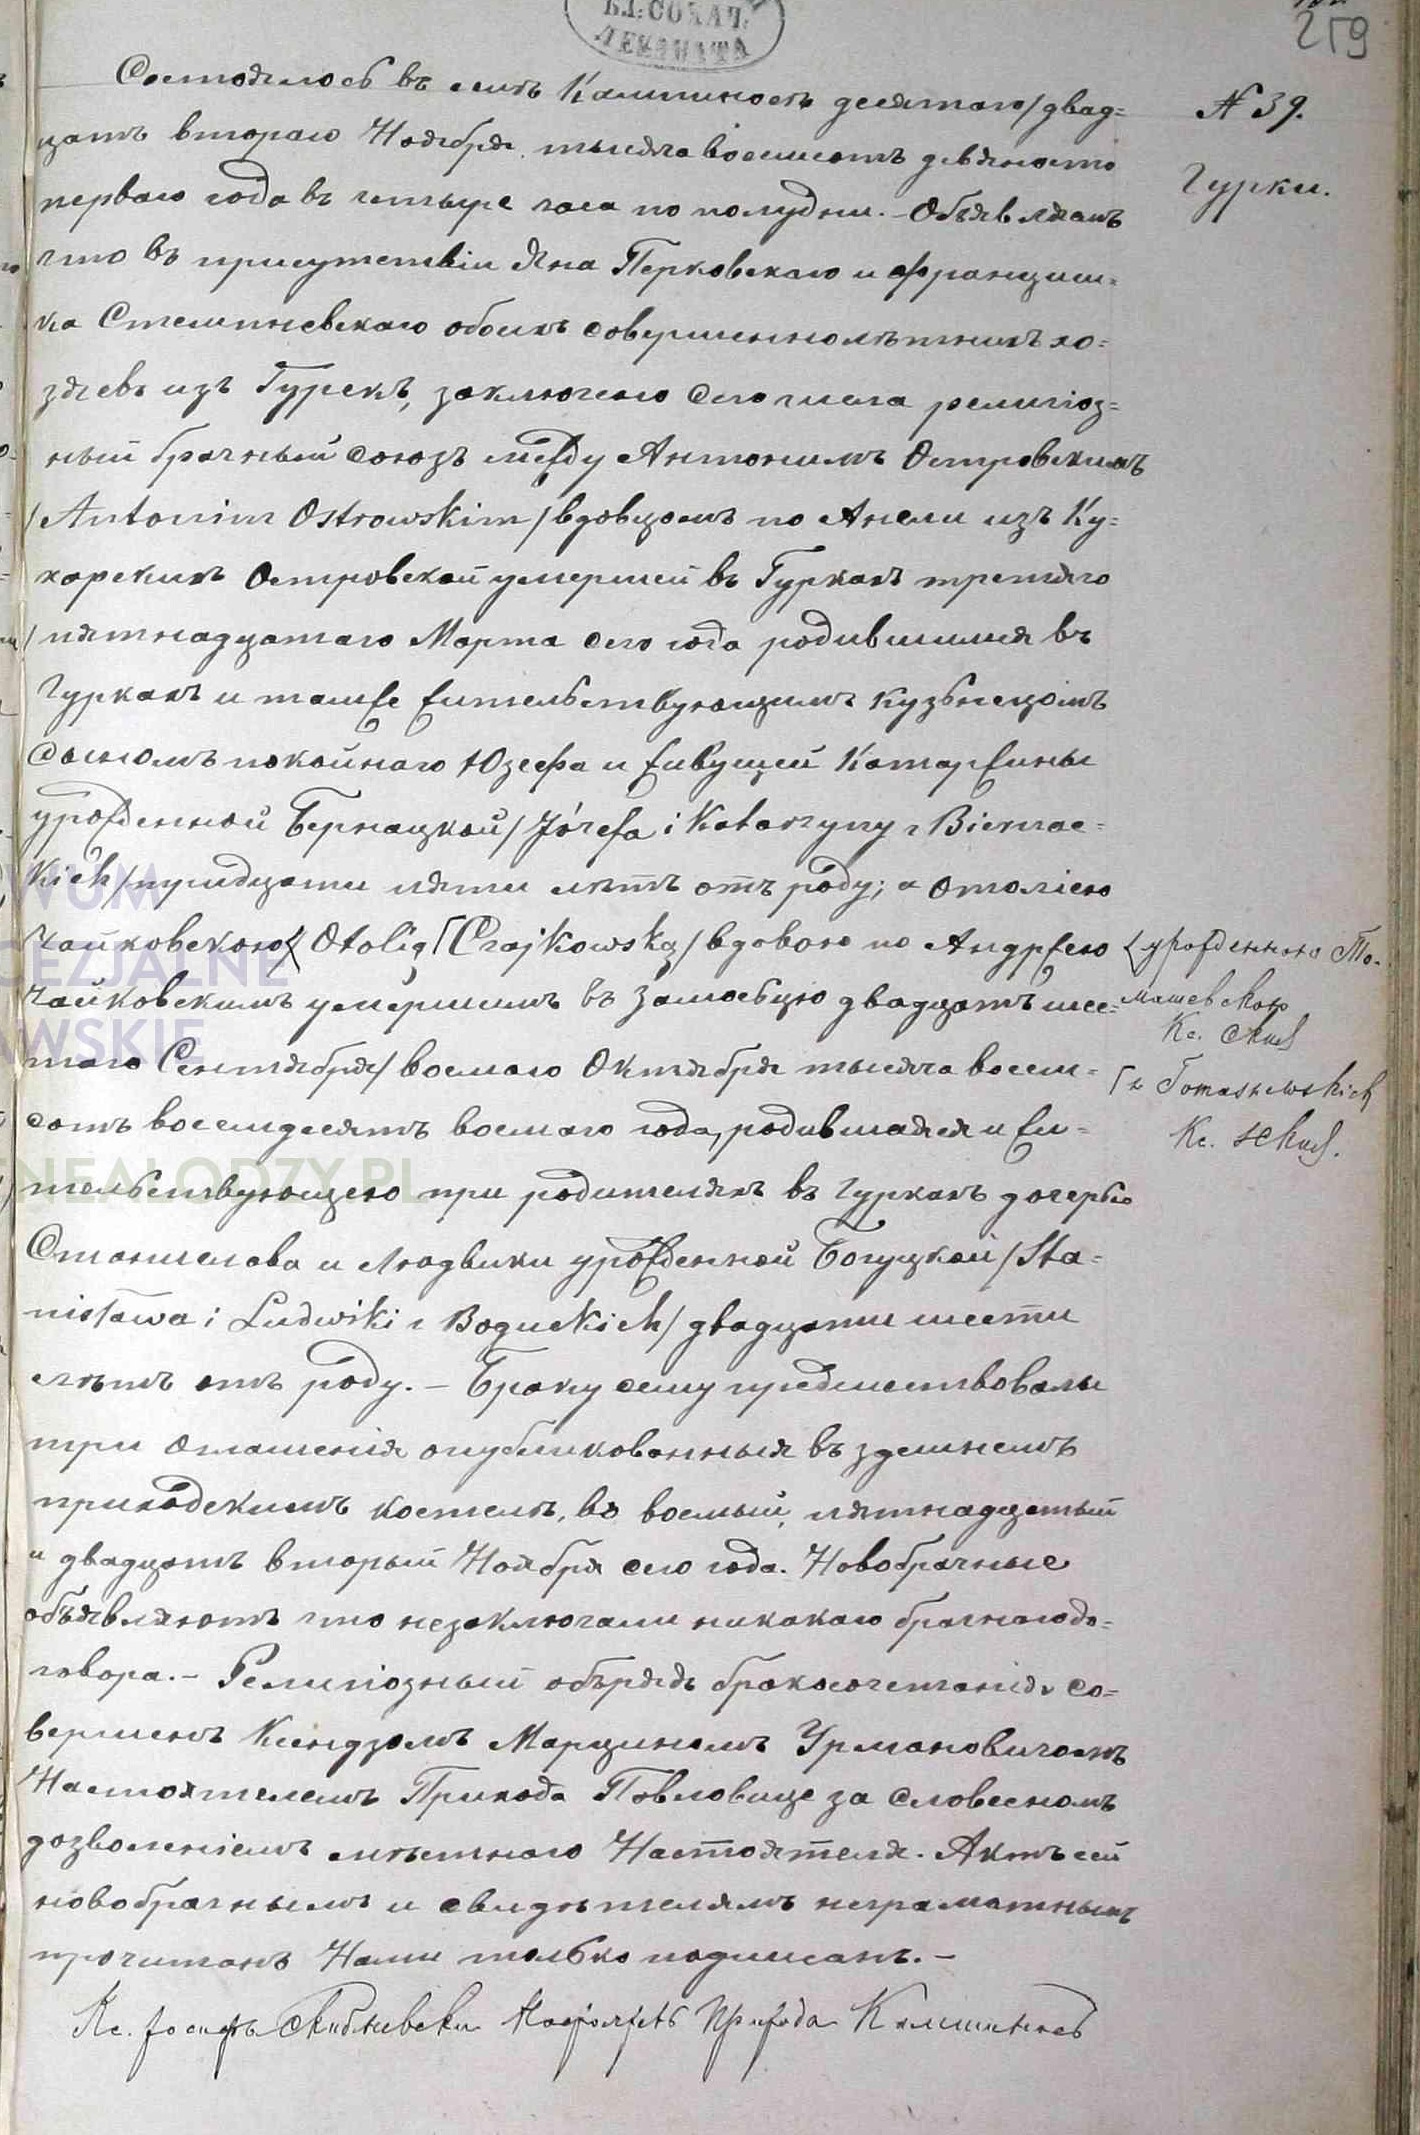 БЛ. СОХАЧ.
ДЕКАНАТА
259
№ 39.
Гурки.
Состоялось въ селѣ Кампиносъ десятаго/двад=
цать втораго Ноября тысяча восемсотъ девяносто
перваго года въ четыре часа по полудни. – Объявляемъ
что въ присутствіи Яна Перковскаго и Францыш=
ка Стемпневскаго обоихъ совершеннолѣтнихъ хо=
зяевъ изъ Гурекъ, заключено сего числа религіоз=
ный брачный союзъ между Антонимъ Островскимъ
/Antonim Ostrowskim/ вдовцомъ по Анели изъ Ку=
харскихъ Островской умершей въ Гуркахъ третяго
/пятнадцатаго Марта сего года родившимся въ
Гуркахъ и тамже жительствующимъ кузьнецомъ
сыномъ покойнаго Юзефа и живущей Катаржины
урожденной Бернацкой /Józefa i Katarzyny z Biernac=
kich/ тридцати пяти лѣтъ отъ роду; а Отоліею
Чайковскою Otolią [Czajkowską/ вдовою по Андржею
Чайковскимъ умершимъ въ Замосьцю двадцать шес=
таго Сентября/восмаго Октября тысяча восем=
сотъ восемдесятъ восмаго года, родившаяся и жи=
тельствующею при родителяхъ въ Гуркахъ дочерью
Станислава и Людвики урожденной Богуцкой /Sta=
nisława i Ludwiki z Boguckich/ двадцати шести
лѣтъ отъ роду. – Браку сему предшествовалы
три оглашенія опубликованныя въ здешнемъ
приходскимъ костелѣ, въ восмый, пятнадцатый
и двадцать вторый Ноября сего года. Новобрачные
объявляютъ что незаключали никакаго брачнаго до=
говора. – Религіозный обърядъ бракосочетанія со=
вершенъ Ксендзомъ Марциномъ Урмановичомъ
Настоятелемъ Прихода Повловице за словесномъ
дозволеніемъ мѣстнаго Настоятеля. Актъ сей
новобрачнымъ и свидѣтелямъ неграматнымъ
прочитанъ Нами только подписанъ. –
Кс. Іосифъ Настоятель Прихода Кампиносъ
урожденною То=
машевскою
Кс.
[z Tomaszewskich
Кс.